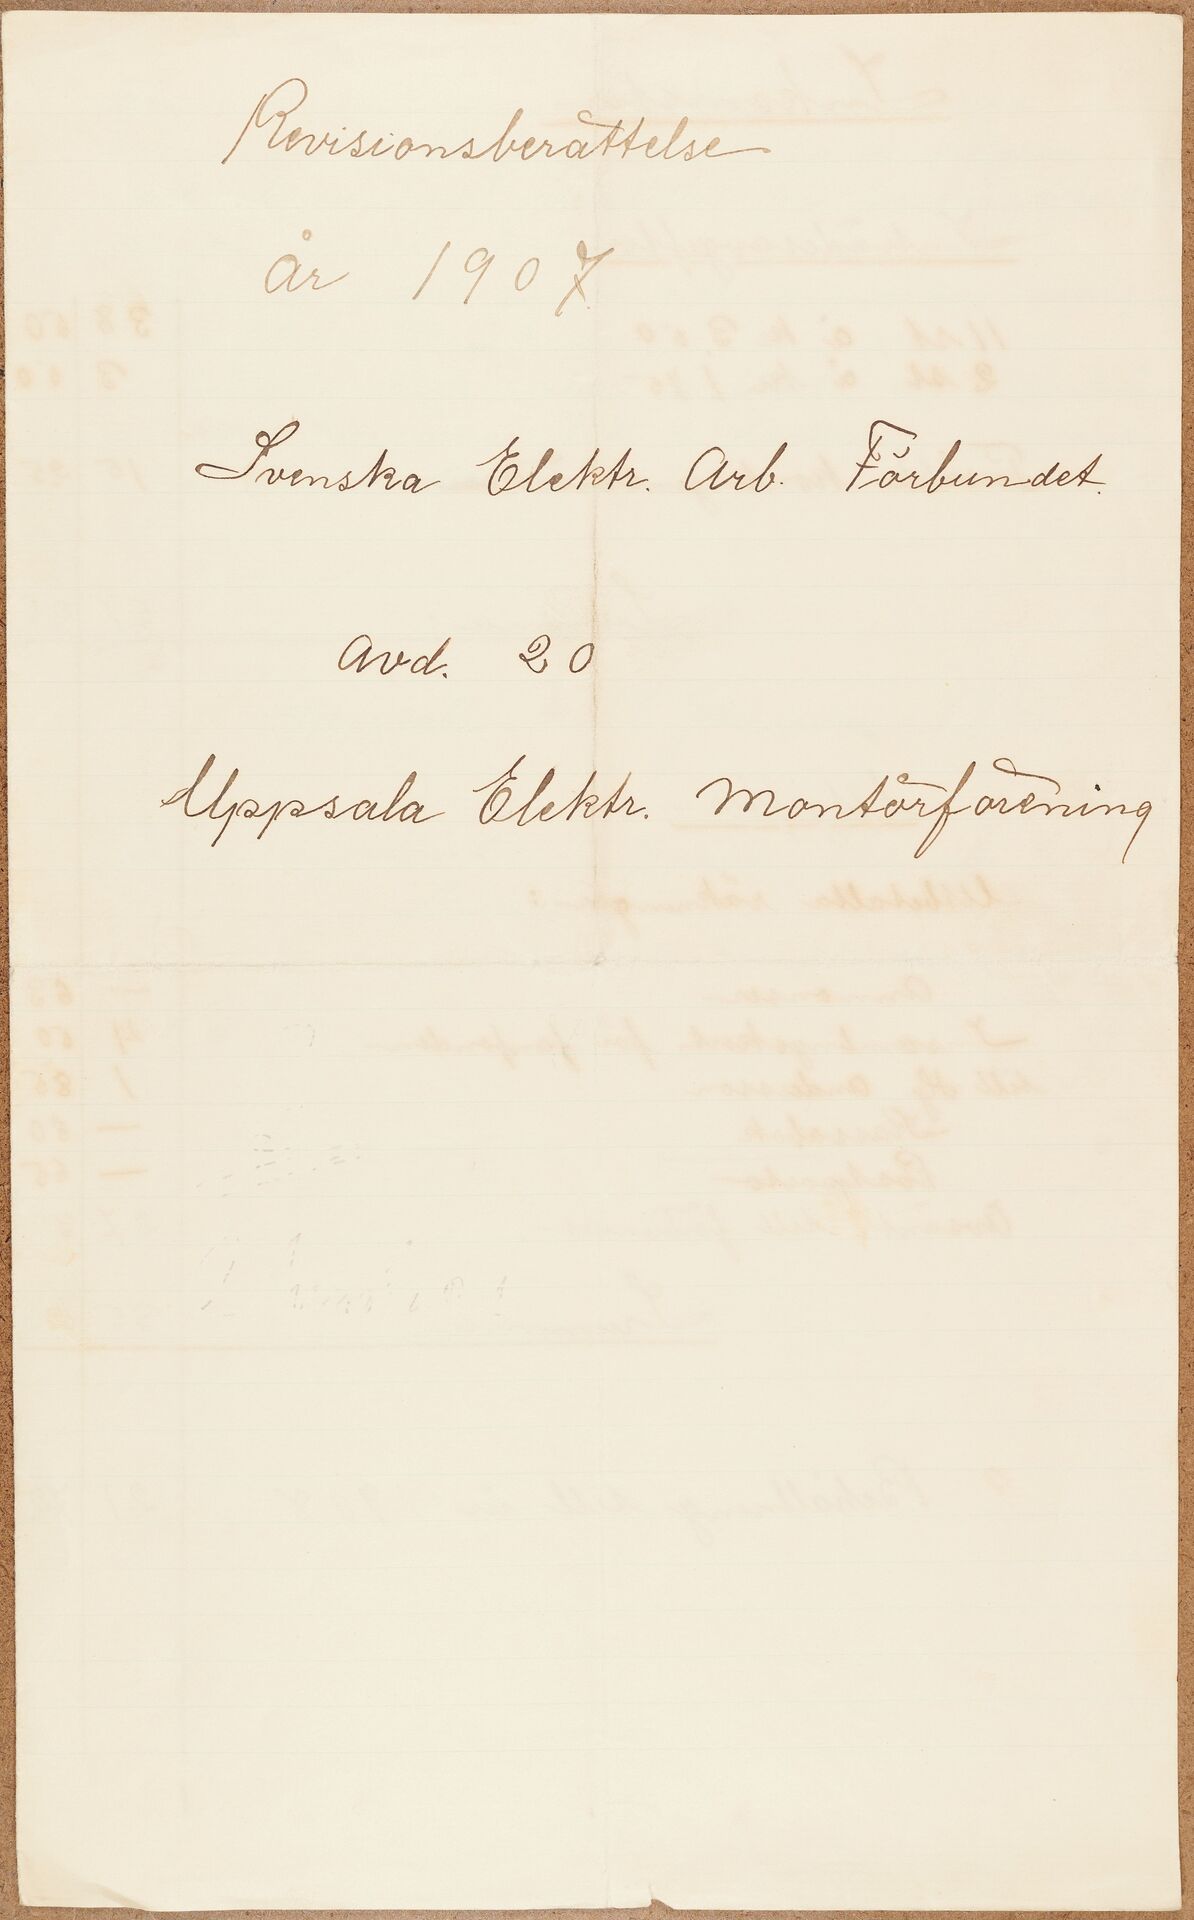 Revisionsberättelse
år 1907
Svenska Elektr. Arb. Förbundet.
Avd. 20
Uppsala Elektr. Montörförening